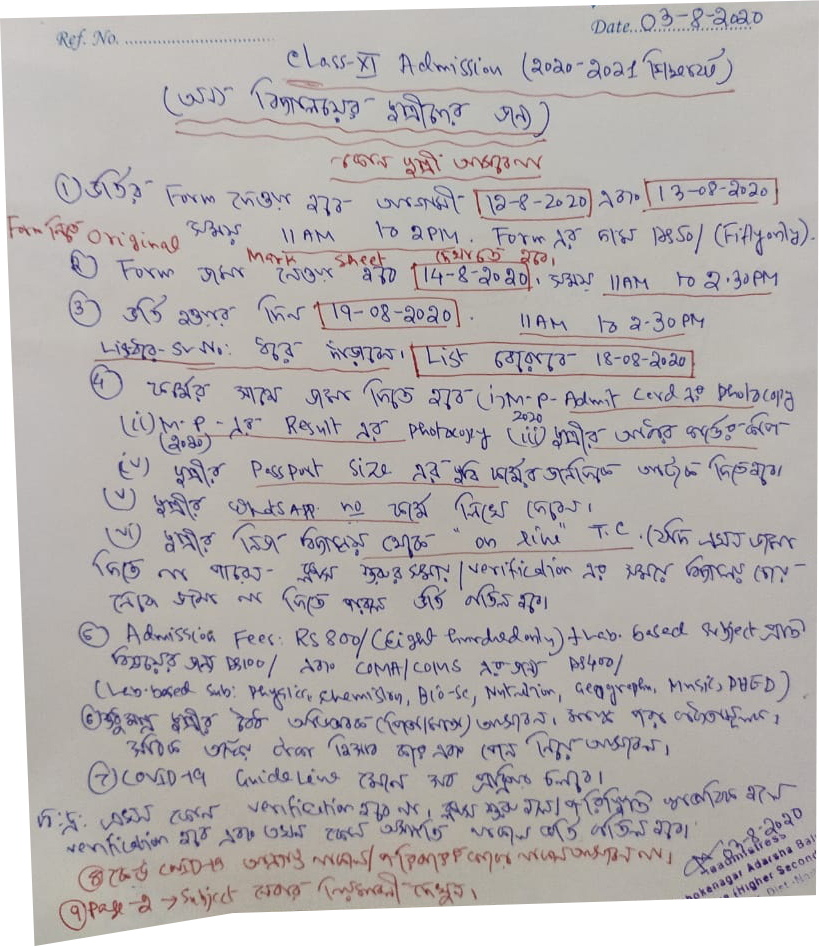 Ref. No. ................................
Date...03-8-2020
Class-XI Admission (2020-2021 শিক্ষাবর্ষে)
(অন্য বিদ্যালয়ের ছাত্রীদের জন্য)
কোন ছাত্রী আসবেনা
① ভর্তির Form দেওয়া হবে আগামী 12-8-2020 এবং 13-08-2020
সময় 11AM to 2PM. Form এর দাম (Fifty only).
Form নিতে Original Mark sheet দেখাতে হবে।
② Form জমা নেওয়া হবে 14-8-2020. সময় 11AM to 2.30PM
③ ভর্তি হওয়ার দিন 19-08-2020. 11AM to 2-30PM
Sl. No: ধরে দাঁড়াবে। List বেরোবে 18-08-2020
④ ফর্মের সাথে জমা দিতে হবে (i) M-P-Admit Card এর photocopy
(ii) M-P-এর Result এর photocopy (iii) ছাত্রীর আধার কার্ডের কপি
(2020) 2020
(iv) ছাত্রীর Passport Size এর ছবি ফর্মের আটকে দিতে হবে।
(v) ছাত্রীর WhatsApp no ফর্মে লিখে দেবেন।
(vi) ছাত্রীর নিজ বিদ্যালয় থেকে "on line" T.C. (যদি এখন জমা
দিতে না পারেন- ক্লাস শুরুর সময়/verification এর সময়
জমা না দিতে পারলে ভর্তি বাতিল হবে।
⑤ Admission Fees: RS 800/ (Eight hundred only) + Lab. based subject প্রতি
বিষয়ের জন্য RS100/ এবং COMA/COMS এর জন্য RS400/
(Lab-based Sub: Physics, Chemistry, Bio-Sc, Nutrition, Geography, Music, PHED)
⑥ ছাত্রীর বৈধ অভিভাবক (পিতা/মাতা) আসবেন।
⑦ COVID-19 Guide Line মেনে সব প্রক্রিয়া চলবে।
বি:দ্র: এখন কোন verification হবে না। ক্লাস শুরু হলে/পরিস্থিতি স্বাভাবিক হলে
verification হবে এবং তখন কোন অসঙ্গতি থাকলে ভর্তি বাতিল হবে।
⑧ কেউ COVID-19 আক্রান্ত থাকলে/পরিবারে কেউ থাকলে আসবেন না।
⑨ Page-2 → Subject নেবার নিয়মাবলী দেখুন।
3-8-2020
Headmistress
Adarsha Bal
(Higher Second